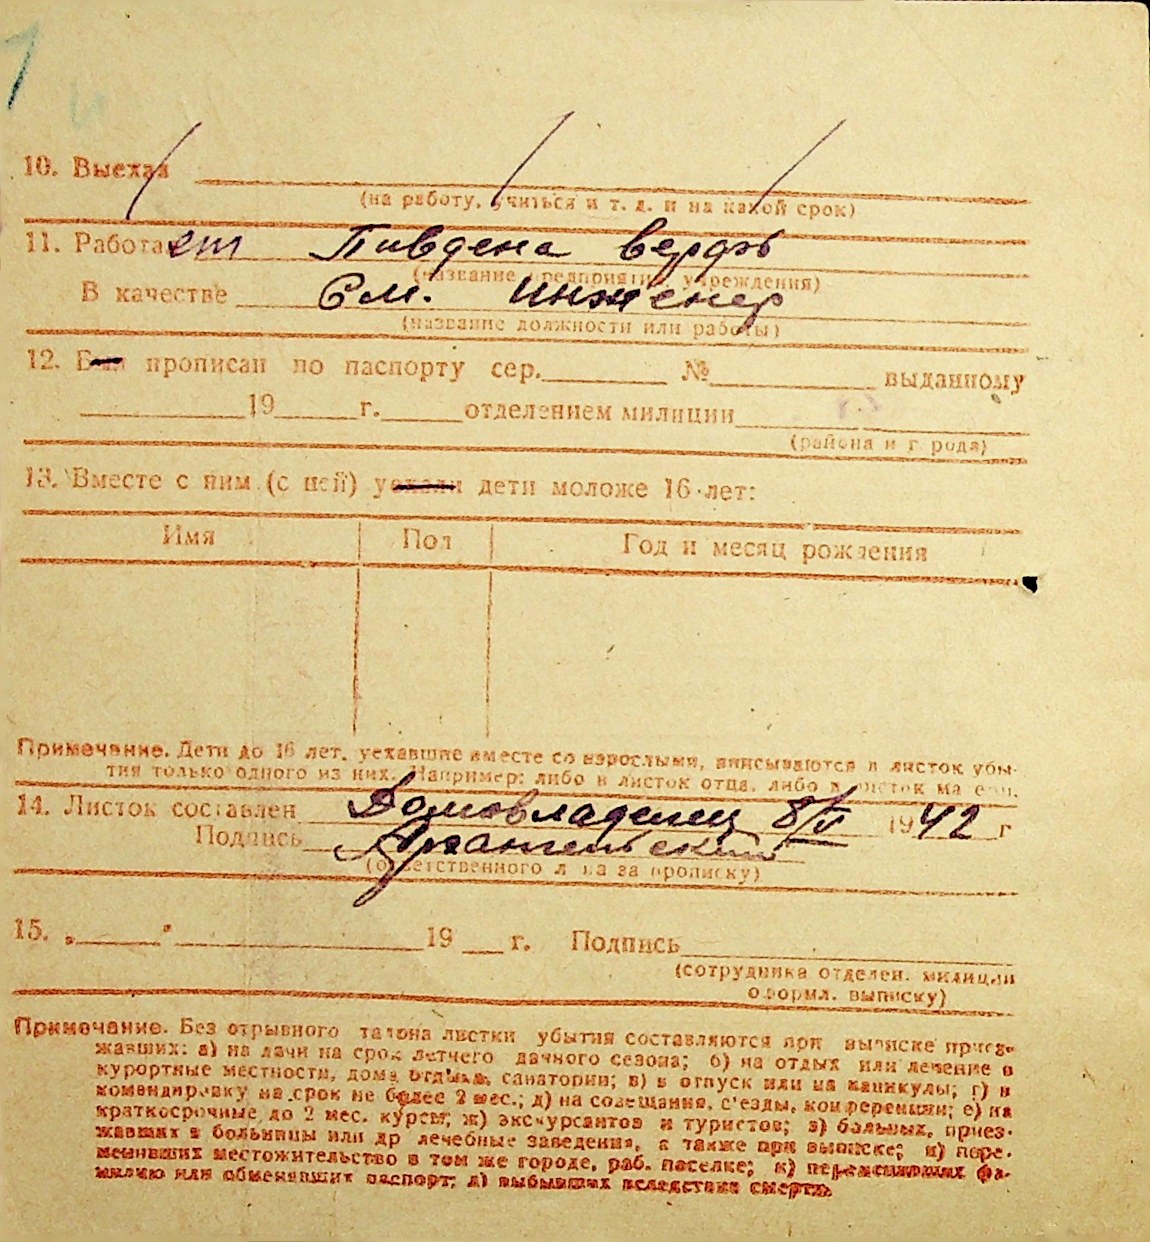 10. Выехал
(на работу, учиться и т. д. и на какой срок)
11. Работает Пивдена верфь
(название предприятия, учреждения)
В качестве См. инженер
(название должности или работы)
12. Был прописан по паспорту сер. № выданному
19 г. отделением милиции
(района и города)
13. Вместе с ним (с ней) уехали дети моложе 16 лет:
Имя Пол Год и месяц рождения
Примечание. Дети до 16 лет, уехавшие вместе со взрослыми, вписываются в листок убы-
тия только одного из них. Например: либо в листок отца, либо в листок матери.
14. Листок составлен Домовладелец 8/V 1942 г
Подпись Архангельский
(ответственного лица за прописку)
15. „ " 19 г. Подпись
(сотрудника отделен. милиции
оформл. выписку)
Примечание. Без отрывного талона листки убытия составляются при выписке приез-
жавших: а) на дачи на срок летнего дачного сезона; б) на отдых или лечение в
курортные местности, дома отдыха, санатории; в) в отпуск или на каникулы; г) в
командировку на срок не более 2 мес.; д) на совещания, с'езды, конференции; е) на
краткосрочные до 2 мес. курсы; ж) экскурсантов и туристов; з) больных, приез-
жавших в больницы или др лечебные заведения, а также при выписке; и) пере-
менивших местожительство в том же городе, раб. поселке; к) переменивших фа-
милию или обменявших паспорт; л) выбывших вследствие смерти.